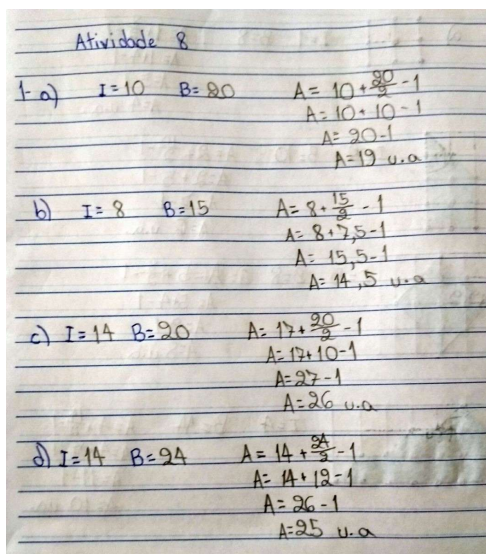 Atividade 8
1- a) I=10 B=20 A= 10+20/2-1
A= 10+10-1
A= 20-1
A=19 u.a
b) I=8 B=15 A= 8+15/2-1
A= 8+7,5-1
A= 15,5-1
A= 14,5 u.a
c) I=14 B=20 A= 17+20/2-1
A= 17+10-1
A=27-1
A=26 u.a
d) I=14 B=24 A= 14+24/2-1
A= 14+12-1
A= 26-1
A=25 u.a